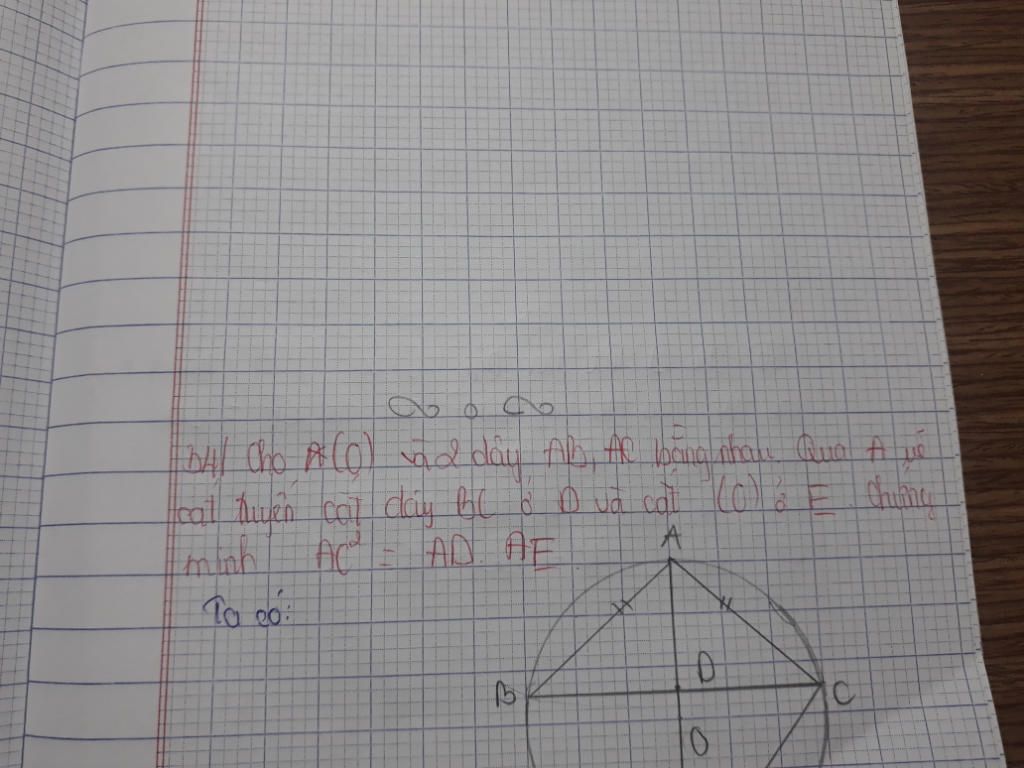 B4/ Cho (O) và 2 dây AB, AC bằng nhau. Qua A vẽ
cát tuyến cắt dây BC ở D và cắt (O) ở E. Chứng
minh AC² = AD. AE.
A
Ta có:
D
B
C
O